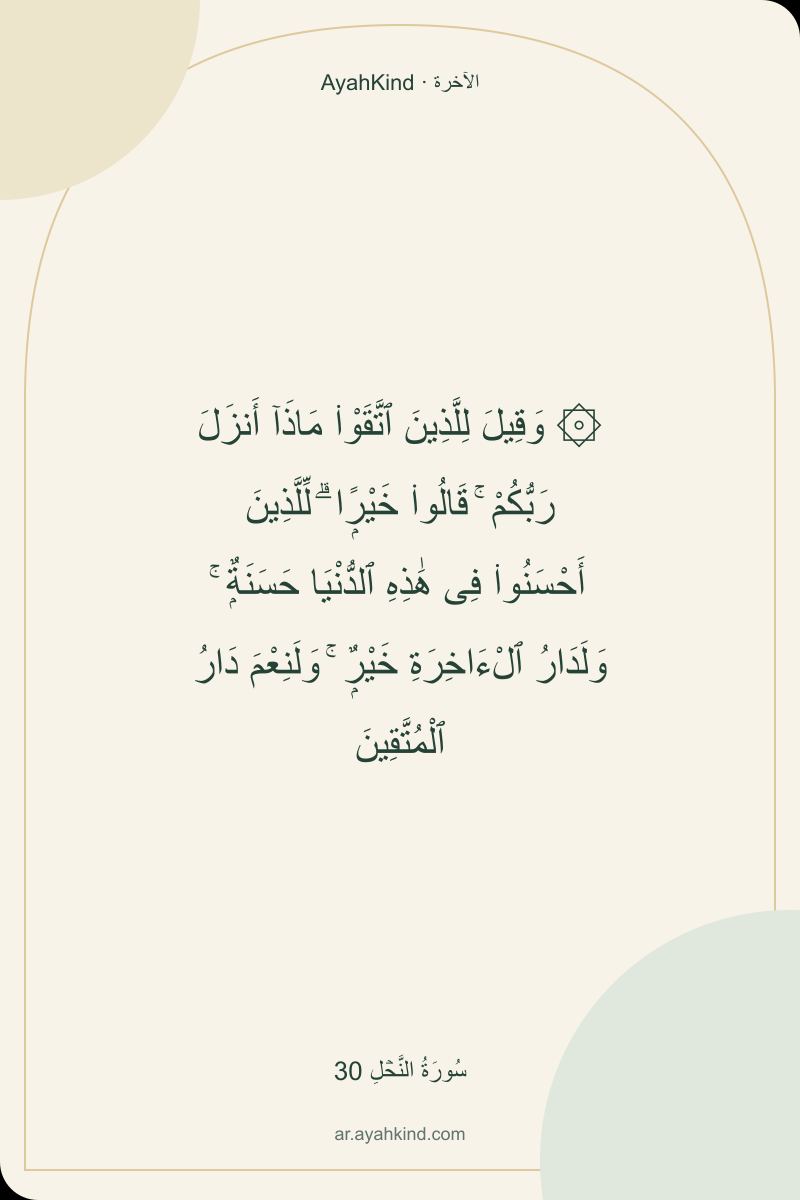 AyahKind · الآخرة
۞ وَقِيلَ لِلَّذِينَ ٱتَّقَوْا۟ مَاذَآ أَنزَلَ
رَبُّكُمْ ۚ قَالُوا۟ خَيْرًۭا ۗ لِّلَّذِينَ
أَحْسَنُوا۟ فِى هَٰذِهِ ٱلدُّنْيَا حَسَنَةٌۭ ۚ
وَلَدَارُ ٱلْءَاخِرَةِ خَيْرٌۭ ۚ وَلَنِعْمَ دَارُ
ٱلْمُتَّقِينَ
سُورَةُ النَّحۡلِ 30
ar.ayahkind.com